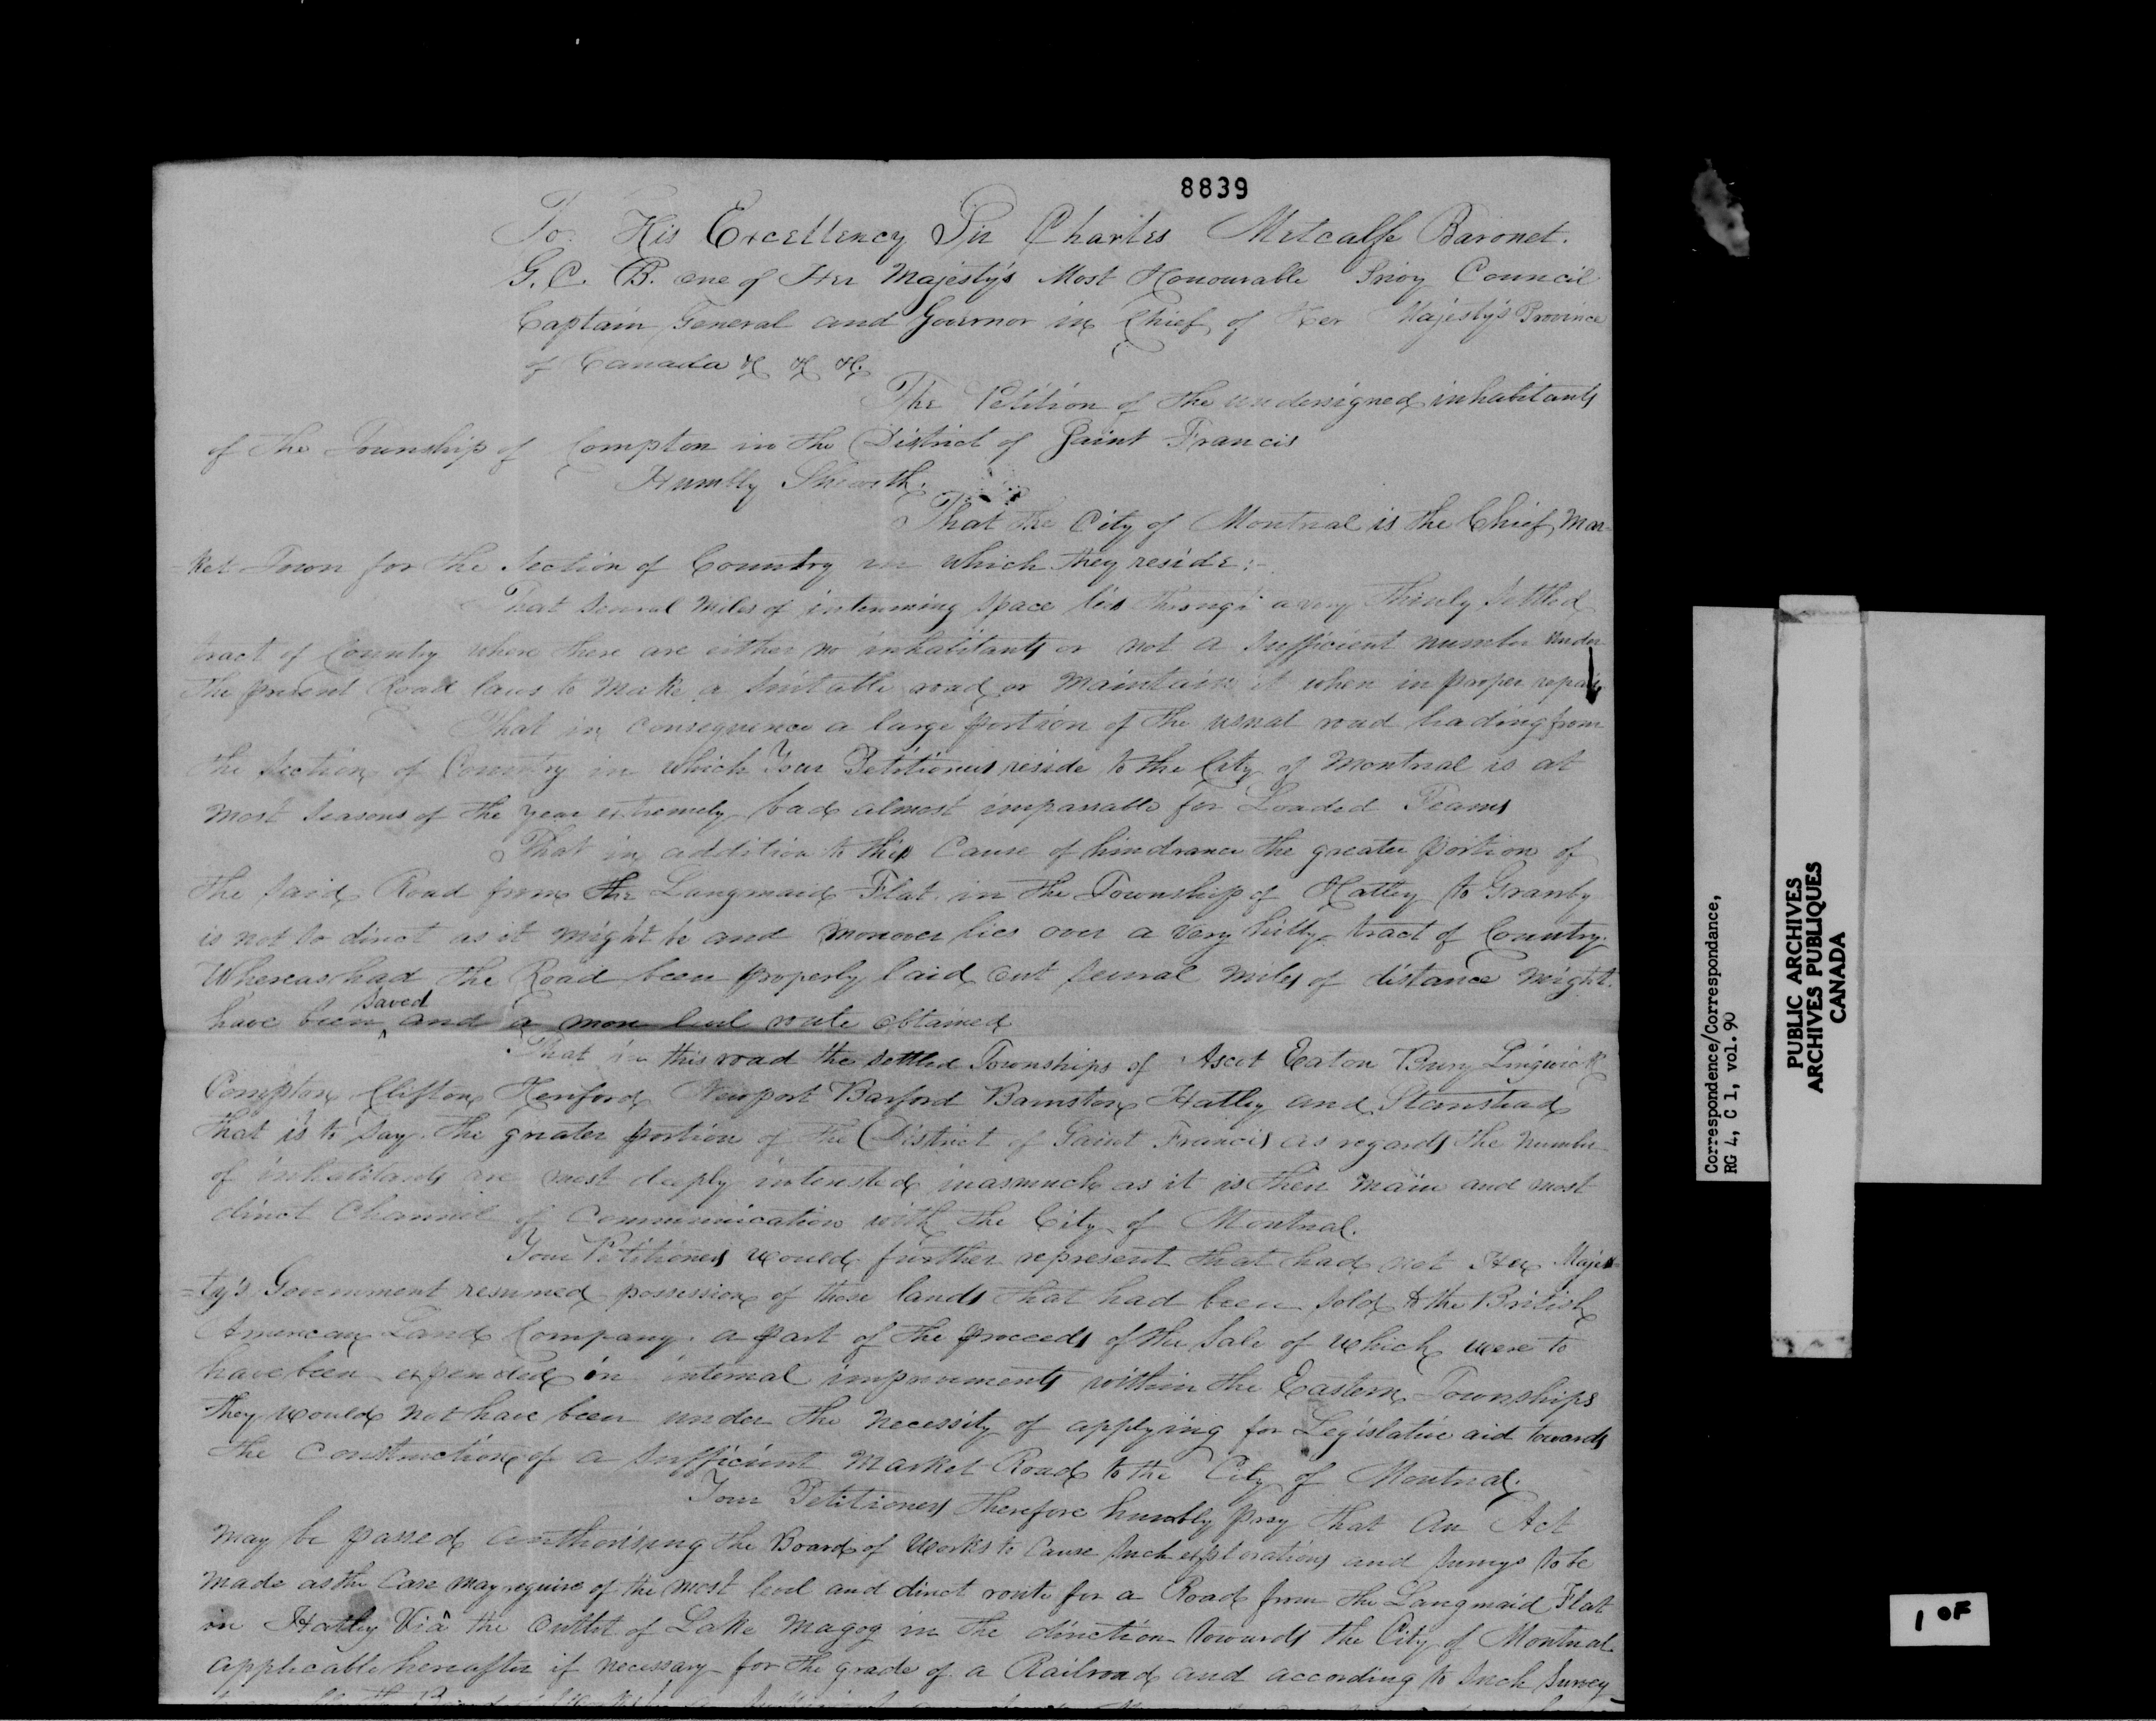 8839
To His Excellency Sir Charles Metcalfe Baronet.
G. C. B. one of Her Majesty's Most Honourable Privy Council
Captain General and Governor in Chief of Her Majesty's Province
of Canada &c &c &c.
The Petition of the undersigned inhabitants
of the Township of Compton in the District of Saint Francis
Humbly Sheweth.
That the City of Montreal is the Chief Mar-
=ket Town for the Section of Country in which they reside:-
That several miles of intervening space lies through a very thinly settled
tract of Country where there are either no inhabitants or not a sufficient number under
the present Road laws to make a suitable road or maintain it when in proper repair
That in consequence a large portion of the usual road leading from
the section of Country in which Your Petitioners reside to the City of Montreal is at
most seasons of the year extremely bad almost impassable for Loaded Teams
That in addition to this cause of hindrance the greater portion of
the said Road from the Langmaid Flat in the Township of Hatley to Granby
is not so direct as it might be and moreover lies over a very hilly tract of Country.
Whereas had the Road been properly laid out several miles of distance might
have been saved and a more level route obtained
That in this road the settled Townships of Ascot Eaton Bury Lingwick
Compton Clifton Hereford Newport Barford Barnston Hatley and Stanstead
that is to say the greater portion of the District of Saint Francis as regards the number
of inhabitants are most deeply interested inasmuch as it is their main and most
direct Channel of Communication with the City of Montreal.
Your Petitioners would further represent that had not Her Majes-
=ty's Government resumed possession of those lands that had been sold to the British
American Land Company, a part of the proceeds of the Sale of which were to
have been expended in internal improvements within the Eastern Townships
they would not have been under the necessity of applying for Legislative aid towards
the construction of a sufficient Market Road to the City of Montreal.
Your Petitioners therefore humbly pray that An Act
may be passed authorising the Board of Works to cause such explorations and surveys to be
made as the case may require of the most level and direct route for a Road from the Langmaid Flat
in Hatley Viâ the outlet of Lake Magog in the direction towards the City of Montreal
applicable hereafter if necessary for the grade of a Railroad and according to such Survey
Correspondence/Correspondance,
RG 4, C 1, vol. 90
PUBLIC ARCHIVES
ARCHIVES PUBLIQUES
CANADA
1 OF